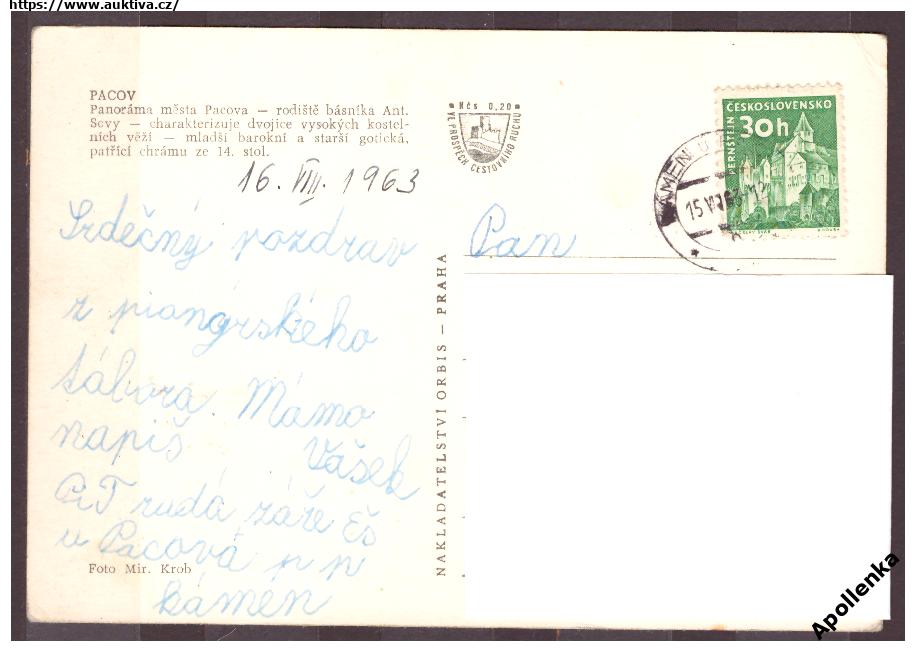 https://www.auktiva.cz/
PACOV
Panoráma města Pacova — rodiště básníka Ant.
Sovy — charakterizuje dvojice vysokých kostel-
ních věží — mladší barokní a starší gotická,
patřící chrámu ze 14. stol.
16. VIII. 1963
Srdečný pozdrav
z pianýrského
tábora. Mámo
napiš Vašek
PiT rudá záře Eš
u Pacová p p
kámen
Foto Mir. Krob
NAKLADATELSTVÍ ORBIS — PRAHA
Kčs 0,20
VE PROSPĚCH CESTOVNÍHO RUCHU
Pan
ČESKOSLOVENSKO
30h
PERNŠTEJN
KAMEN U
15 VIII 63
Apollenka